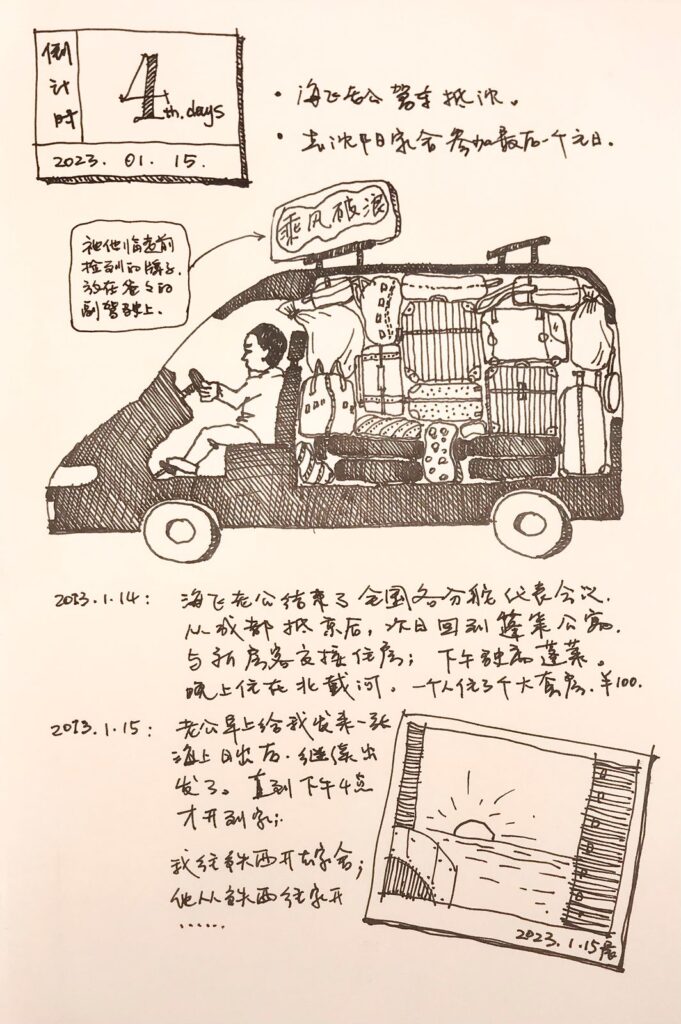 倒计时
4th.days
2023. 01. 15.
· 海飞老公驾车抵沈。
· 去沈中日家会参加最后一个主日.
乘风破浪
他临走前
捡到的牌子.
放在爸爸的
副驾驶上.
2023.1.14： 海飞老公结束了全国各分院代表会议.
从成都抵京后，次日回到蓬莱公寓.
与新房客交接住房；下午驶离蓬莱。
晚上住在北戴河。一个人住了个大套房.¥100.
2023.1.15： 老公早上给我发来一张
海上日出后.继续出
发了。直到下午4点
才开到家；
我往铁西开去家会；
他从铁西往家开
......
2023.1.15晨